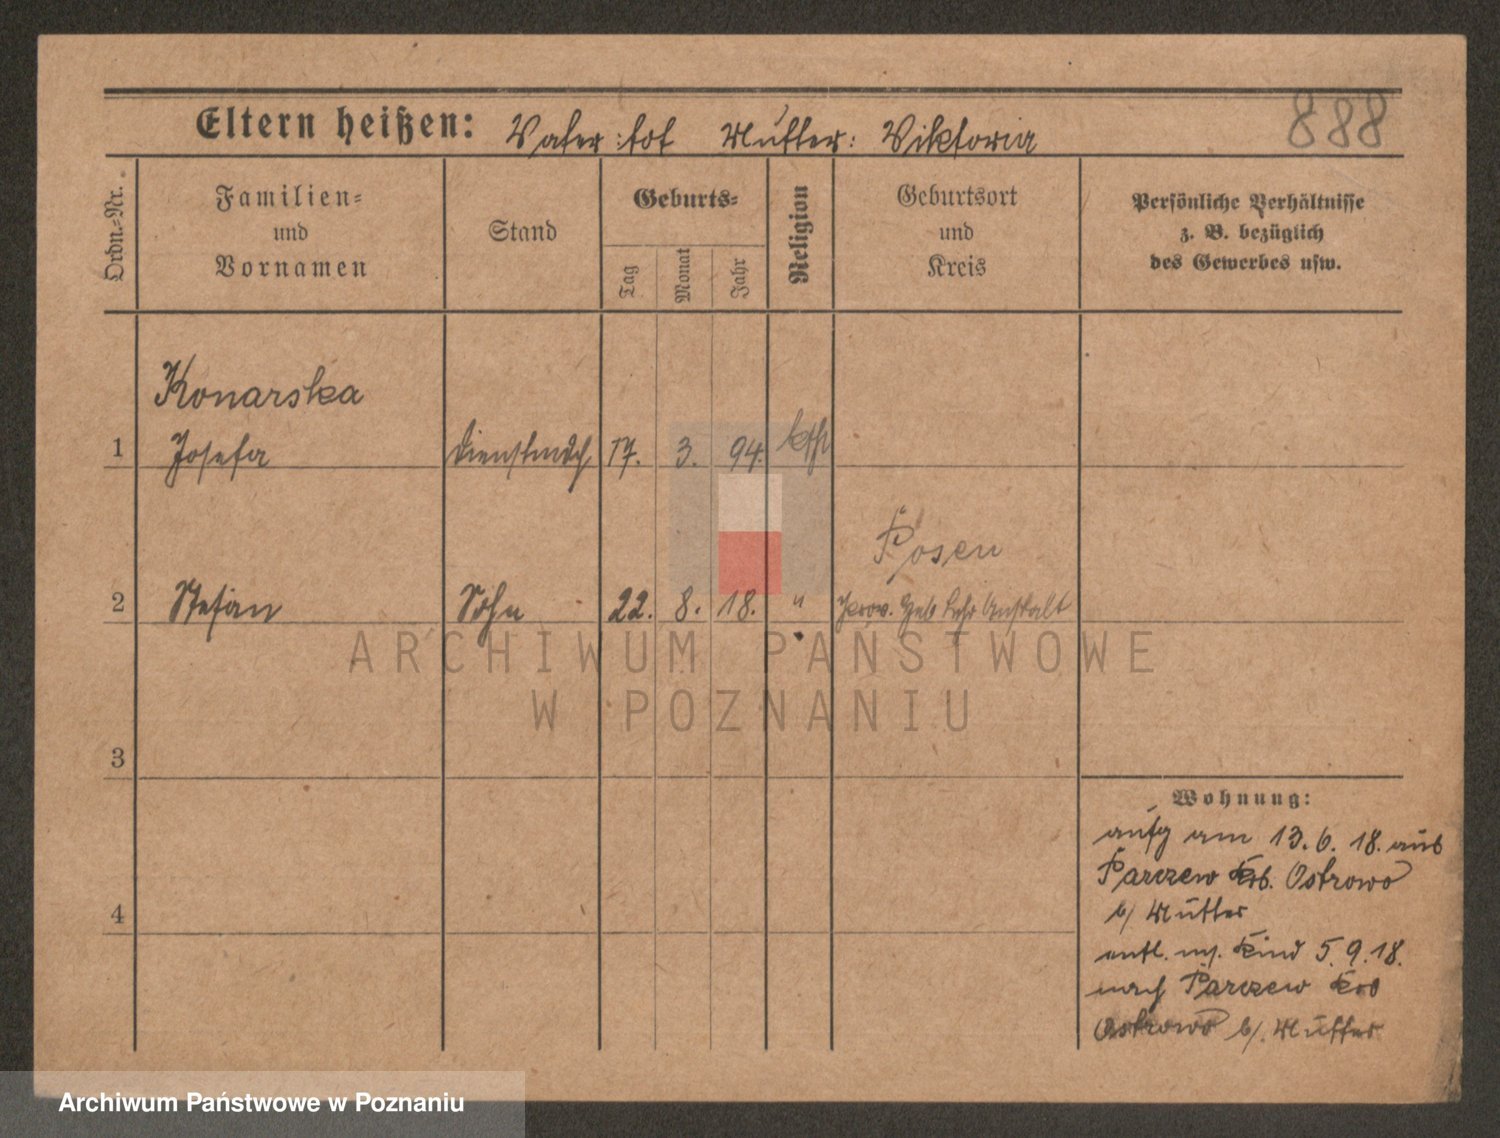 888
Eltern heißen: Vater: tot Mutter: Viktoria
Ordn.-Nr.
Familien-
und
Vornamen
Stand
Geburts-
Tag
Monat
Jahr
Religion
Geburtsort
und
Kreis
Persönliche Verhältnisse
z. B. bezüglich
des Gewerbes usw.
Konarska
1 Josefa Dienstmdch 17. 3. 94. kth
Posen
2 Stefan Sohn 22. 8. 18. " Prov. Heb Lehr Anstalt
3
4
Wohnung:
aufg am 13. 6. 18. aus
Parczew Krs. Ostrowo
b/ Mutter
entl. m/. Kind 5. 9. 18.
nach Parczew Krs
Ostrowo b/. Mutter
ARCHIWUM PAŃSTWOWE
W POZNANIU
Archiwum Państwowe w Poznaniu